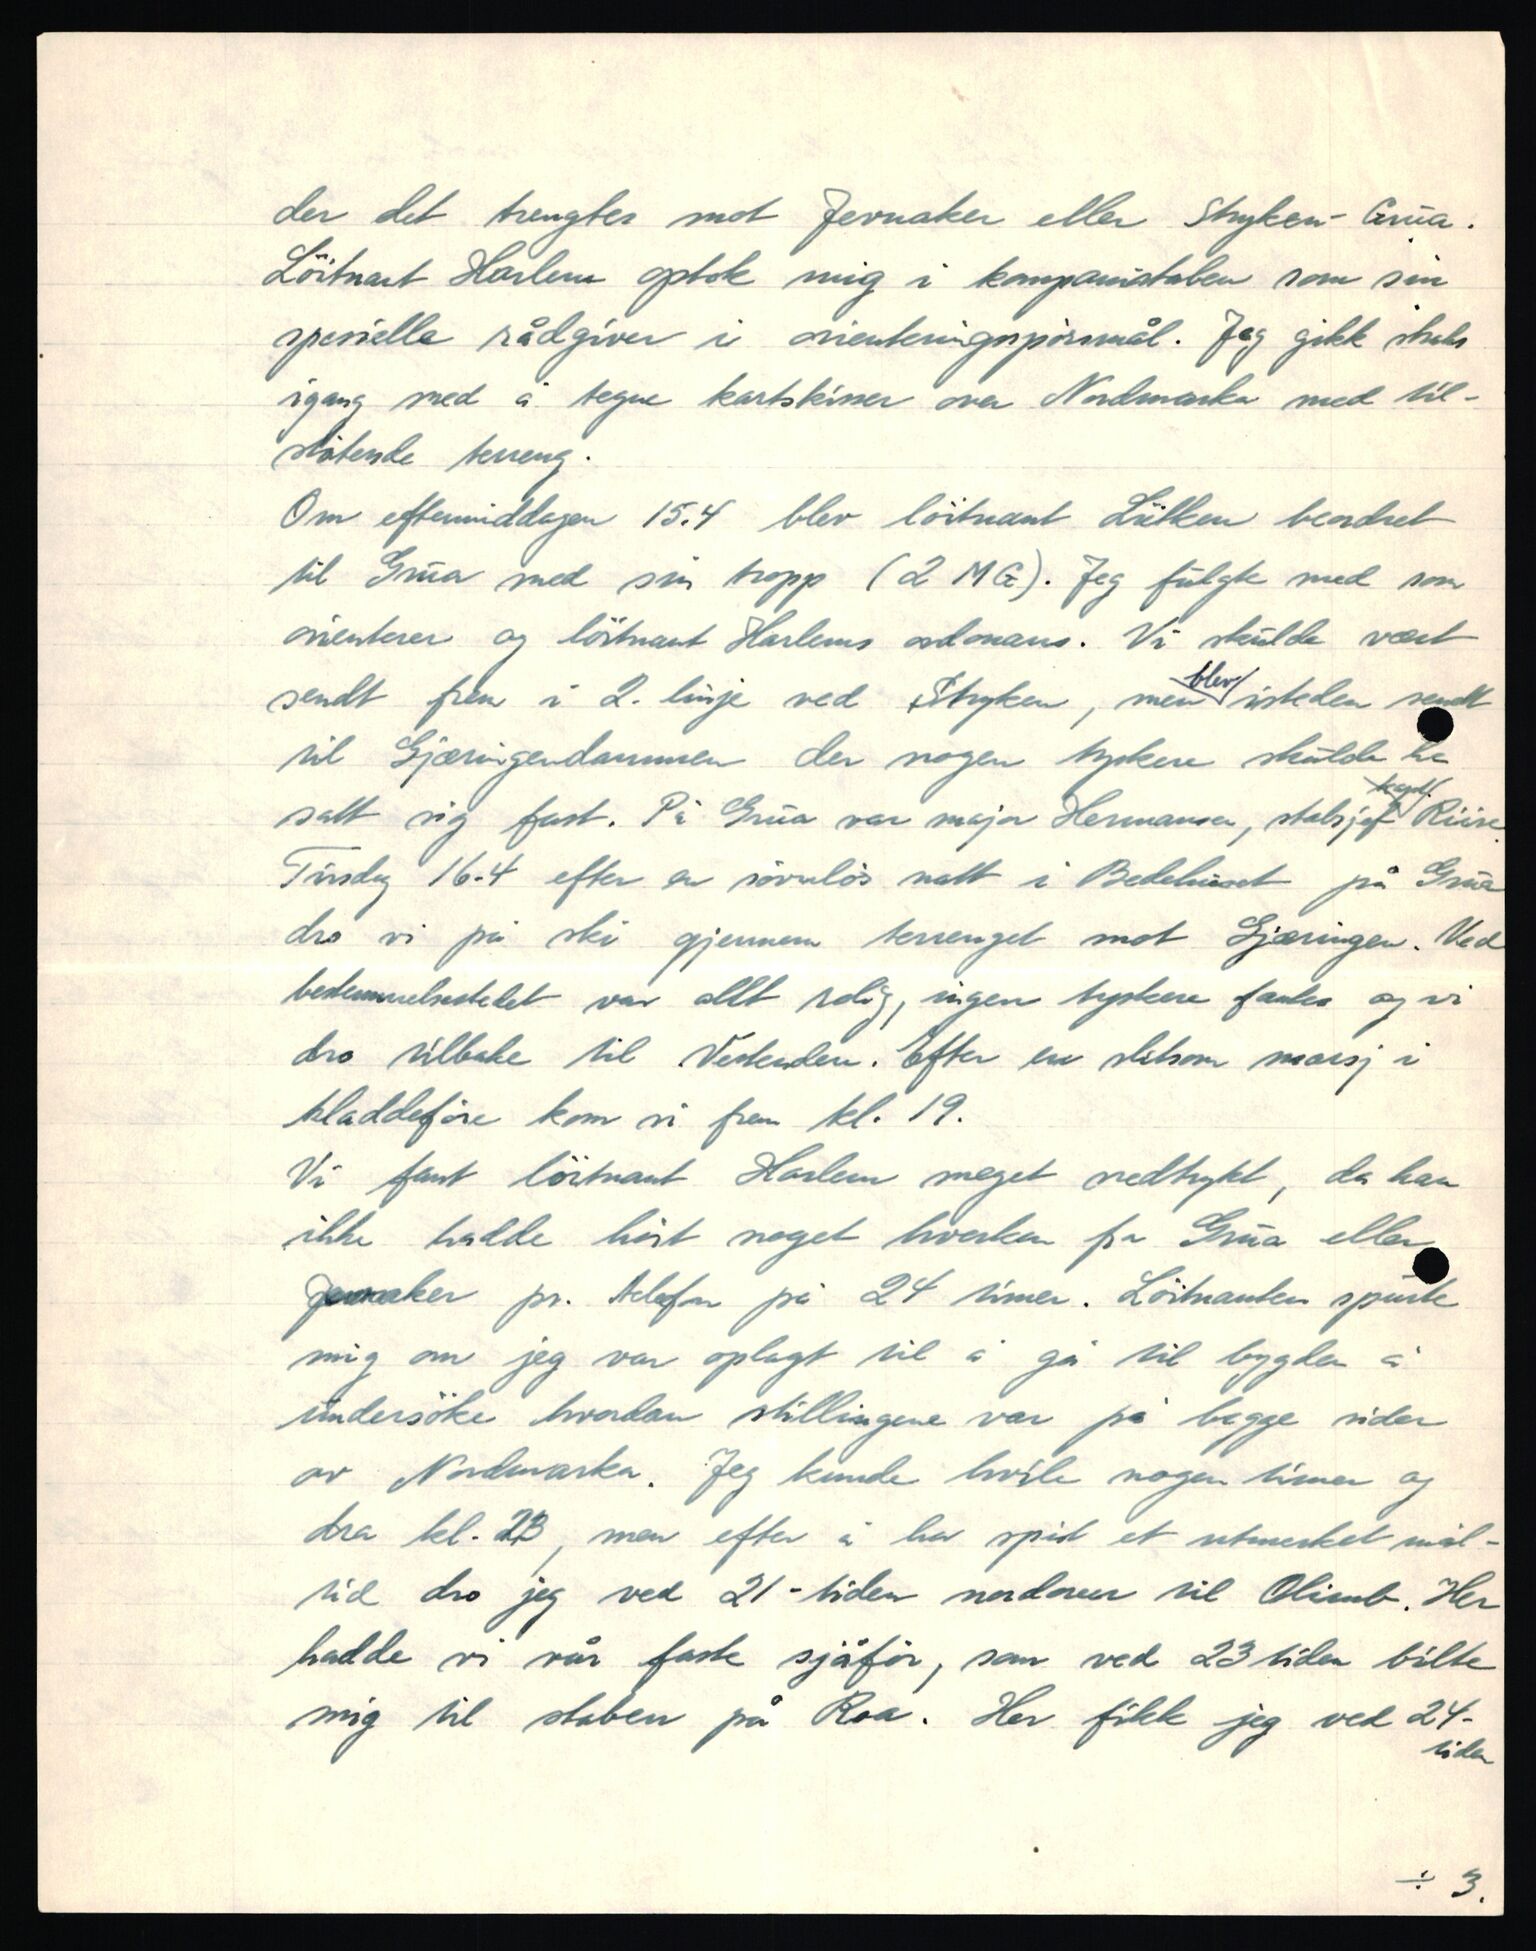 der det trengtes mot Jevnaker eller Stryken-Grua.
Löitnant Harlem optok mig i kompanistaben som sin
spesielle rådgiver i orienteringsspörsmål. Jeg gikk straks
igang med å tegne kartskisser over Nordmarka med til-
stötende terreng.
Om eftermiddagen 15.4 blev löitnant Lütken beordret
til Grua med sin tropp (2 MG). Jeg fulgte med som
orienterer og löitnant Harlems ordonans. Vi skulde vært
sendt frem i 2. linje ved Stryken, men blev isteden sendt
til Gjæringendammen der nogen tyskere skulde ha
satt sig fast. På Grua var major Hermansen, stabsjef kapt. Riise.
Tirsdag 16.4 efter en sövnlös natt i Bedehuset på Grua
dro vi på ski gjennem terrenget mot Gjæringen. Ved
bestemmelsestedet var allt rolig, ingen tyskere fantes og vi
dro tilbake til Vestenden. Efter en slitsom marsj i
kladdeföre kom vi frem kl. 19.
Vi fant löitnant Harlem meget nedtrykt, da han
ikke hadde hört noget hverken fra Grua eller
Jevnaker pr. telefon på 24 timer. Löitnanten spurte
mig om jeg var oplagt til å gå til bygden å
undersöke hvordan stillingene var på begge sider
av Nordmarka. Jeg kunde hvile nogen timer og
dra kl. 23, men efter å ha spist et utmerket mål-
tid dro jeg ved 21-tiden nordover til Olimb. Her
hadde vi vår faste sjåför, som ved 23 tiden bilte
mig til staben på Roa. Her fikk jeg ved 24-
tiden
÷ 3.